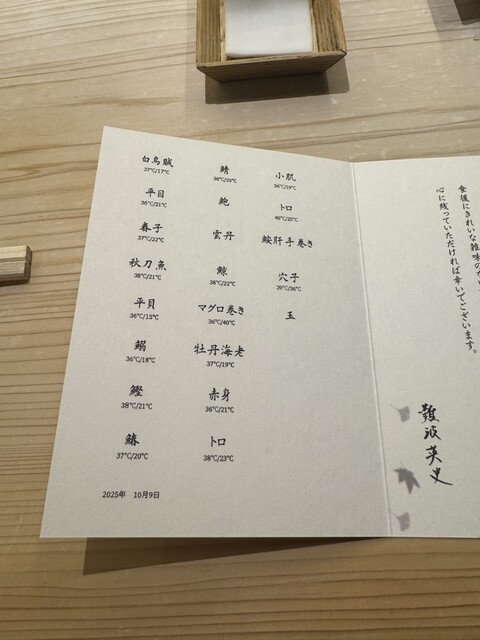 白烏賊
37℃/17℃
平目
36℃/21℃
春子
37℃/22℃
秋刀魚
38℃/21℃
平貝
36℃/15℃
鰯
36℃/18℃
鰹
38℃/21℃
鰆
37℃/20℃
鯖
36℃/10℃
鮑
雲丹
鯨
38℃/22℃
マグロ巻き
36℃/40℃
牡丹海老
37℃/19℃
赤身
36℃/21℃
トロ
38℃/23℃
小肌
36℃/19℃
トロ
40℃/25℃
鮟肝手巻き
穴子
39℃/36℃
玉
2025年 10月9日
食後にきれいな雑味のな
心に残っていただければ幸いでございます。
難波英史